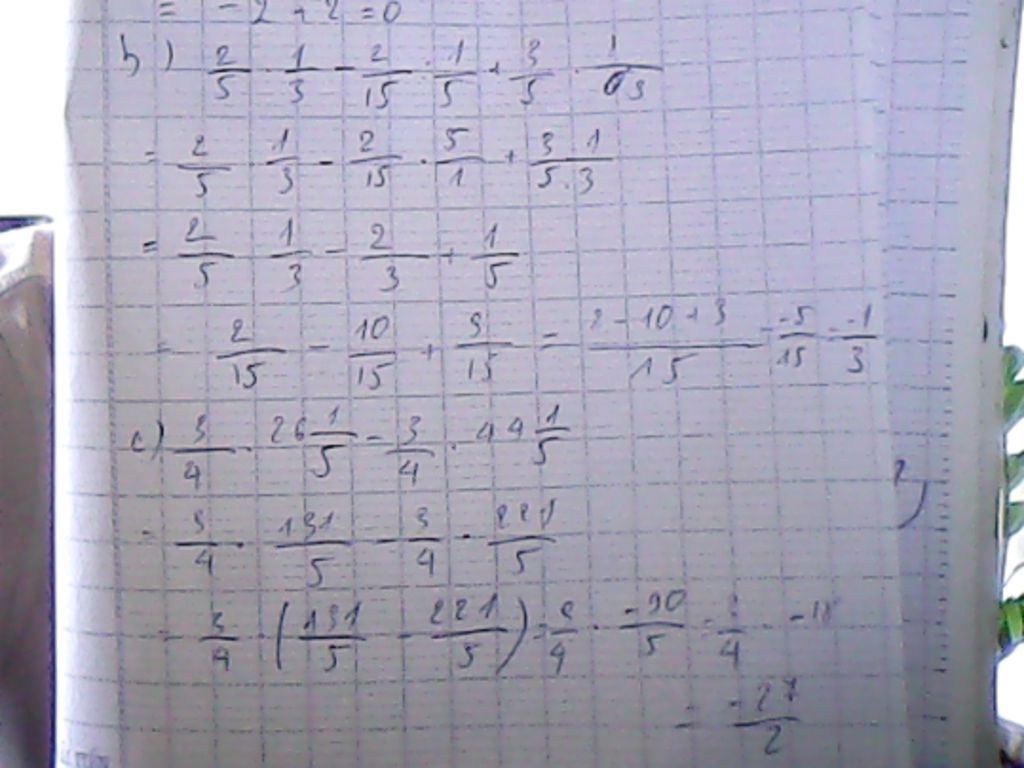 = -2 + 2 = 0
b) 2/5 · 1/3 - 2/15 : 1/5 + 3/5 · 1/3
= 2/5 · 1/3 - 2/15 · 5/1 + 3.1/5.3
= 2/5 · 1/3 - 2/3 + 1/5
= 2/15 - 10/15 + 3/15 = 2-10+3/15 = -5/15 = -1/3
c) 3/4 · 26 1/5 - 3/4 · 44 1/5
= 3/4 · 131/5 - 3/4 · 221/5
= 3/4 · (131/5 - 221/5) = 3/4 · -90/5 = 3/4 · -18
= -27/2